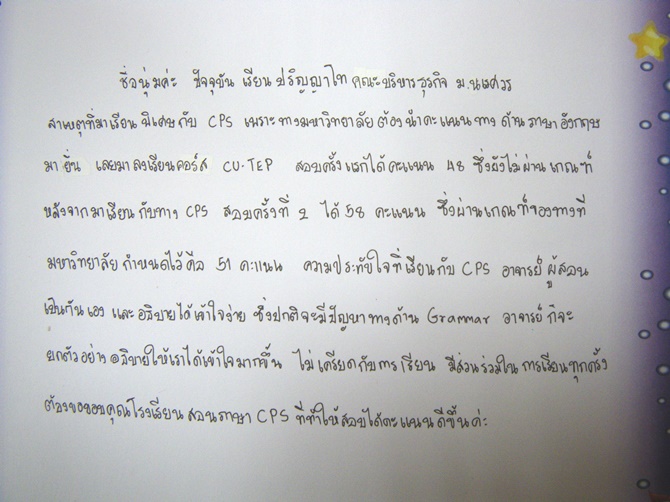 ชื่อนุ่มค่ะ ปัจจุบัน เรียน ปริญญาโท คณะบริหารธุรกิจ ม.นเรศวร
สาเหตุที่มาเรียน พิเศษกับ CPS เพราะทางมหาวิทยาลัยต้องนำคะแนนทางด้านภาษาอังกฤษ
มายื่น เลยมาลงเรียนคอร์ส CU-TEP สอบครั้งแรกได้คะแนน 48 ซึ่งยังไม่ผ่านเกณฑ์
หลังจากมาเรียนกับทาง CPS สอบครั้งที่ 2 ได้ 58 คะแนน ซึ่งผ่านเกณฑ์ของทางที่
มหาวิทยาลัยกำหนดไว้คือ 51 คะแนน ความประทับใจที่เรียนกับ CPS อาจารย์ผู้สอน
เป็นกันเอง และอธิบายได้เข้าใจง่าย ซึ่งปกติจะมีปัญหาทางด้าน Grammar อาจารย์ก็จะ
ยกตัวอย่าง อธิบายให้เราได้เข้าใจมากขึ้น ไม่เครียดกับการเรียน มีส่วนร่วมในการเรียนทุกครั้ง
ต้องขอขอบคุณโรงเรียนสอนภาษา CPS ที่ทำให้สอบได้คะแนนดีขึ้นค่ะ